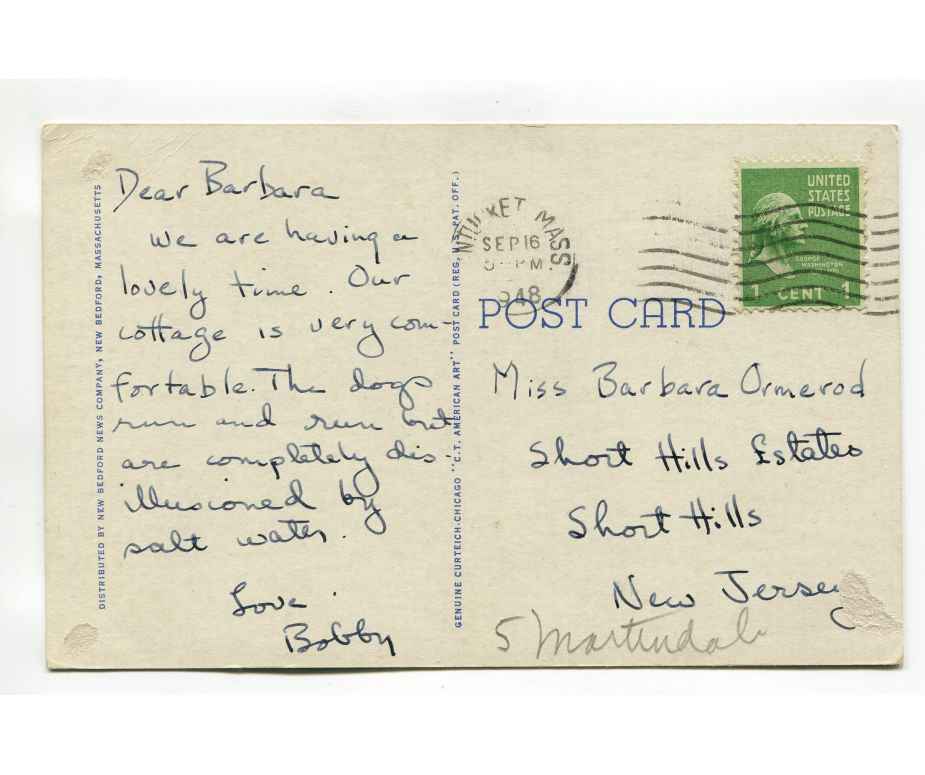 DISTRIBUTED BY NEW BEDFORD NEWS COMPANY, NEW BEDFORD, MASSACHUSETTS
Dear Barbara
We are having a
lovely time. Our
cottage is very com-
fortable. The dogs
run and run but
are completely dis-
illusioned by
salt water.
Love
Bobby
GENUINE CURTEICH-CHICAGO "C.T. AMERICAN ART" POST CARD (REG. U.S. PAT. OFF.)
NTU KET MASS
SEP 16
PM
948
UNITED
STATES
POSTAGE
GEORGE
WASHINGTON
1 CENT 1
POST CARD
Miss Barbara Ormerod
Short Hills Estates
Short Hills
New Jersey
5 Martindale